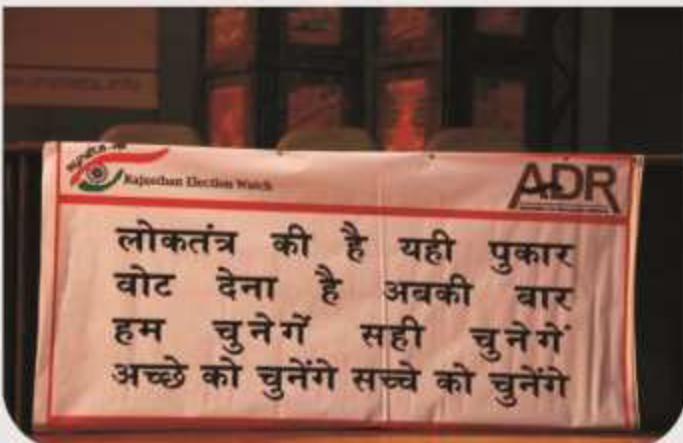 Rajasthan Election Watch
ADR
लोकतंत्र की है यही पुकार
वोट देना है अबकी बार
हम चुनेगें सही चुनेगें
अच्छे को चुनेंगे सच्चे को चुनेंगे